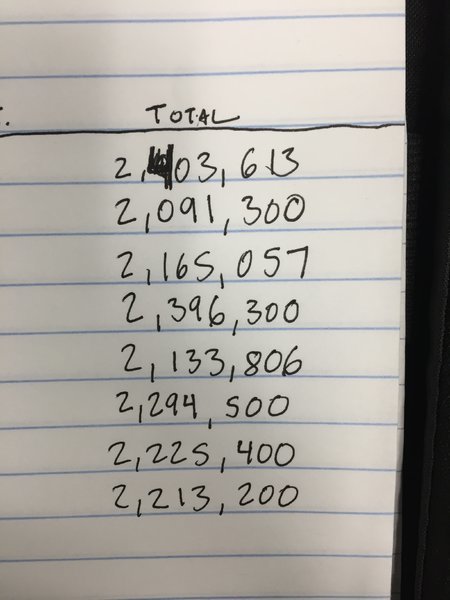 T.
TOTAL
2,403,613
2,091,300
2,165,057
2,396,300
2,133,806
2,294,500
2,225,400
2,213,200